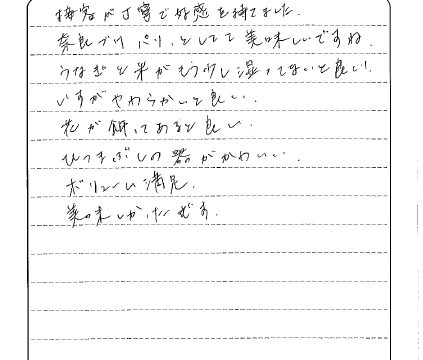 接客が丁寧で好感を持てました.
奈良づけパリッとしてて美味しいですね.
うなぎと米がもう少し湿ってないと良い!
いすがやわらかいと良い.
花が飾ってあると良い.
ひつまぶしの器がかわいい.
ボリューム満足.
美味しかったぜす.